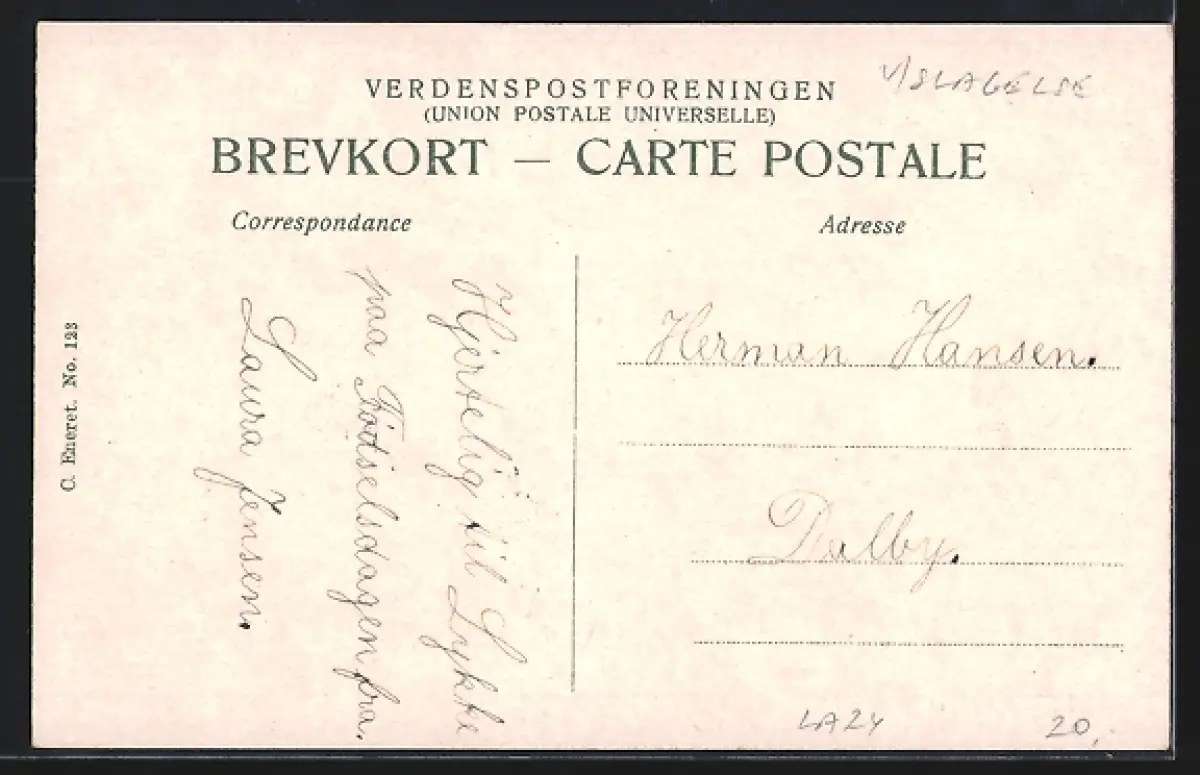 V/SLAGELSE
VERDENSPOSTFORENINGEN
(UNION POSTALE UNIVERSELLE)
BREVKORT — CARTE POSTALE
Correspondance
Adresse
Hjertelig til Lykke
paa Födselsdagen fra.
Laura Jensen.
Herman Hansen.
Dalby.
C. Eneret. No. 123
LA24
20,-